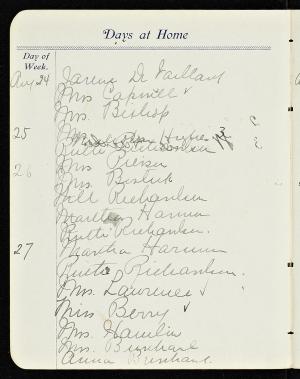 Days at Home
Day of
Week.
Aug 24 De Vaillant
Mrs Capwell ✓
Mrs. Bishop
25 3
Ruth Richardson 3
26 Mrs Pierson
Mrs
Will Richardson
Martha Hannum
Ruth Richardson.
27 Martha Hannum
Ruth Richardson.
Mrs. Lawrence ✓
Miss Berry ✓
Mrs. Hamlin
Mrs. Burnham
Anna Burnham.